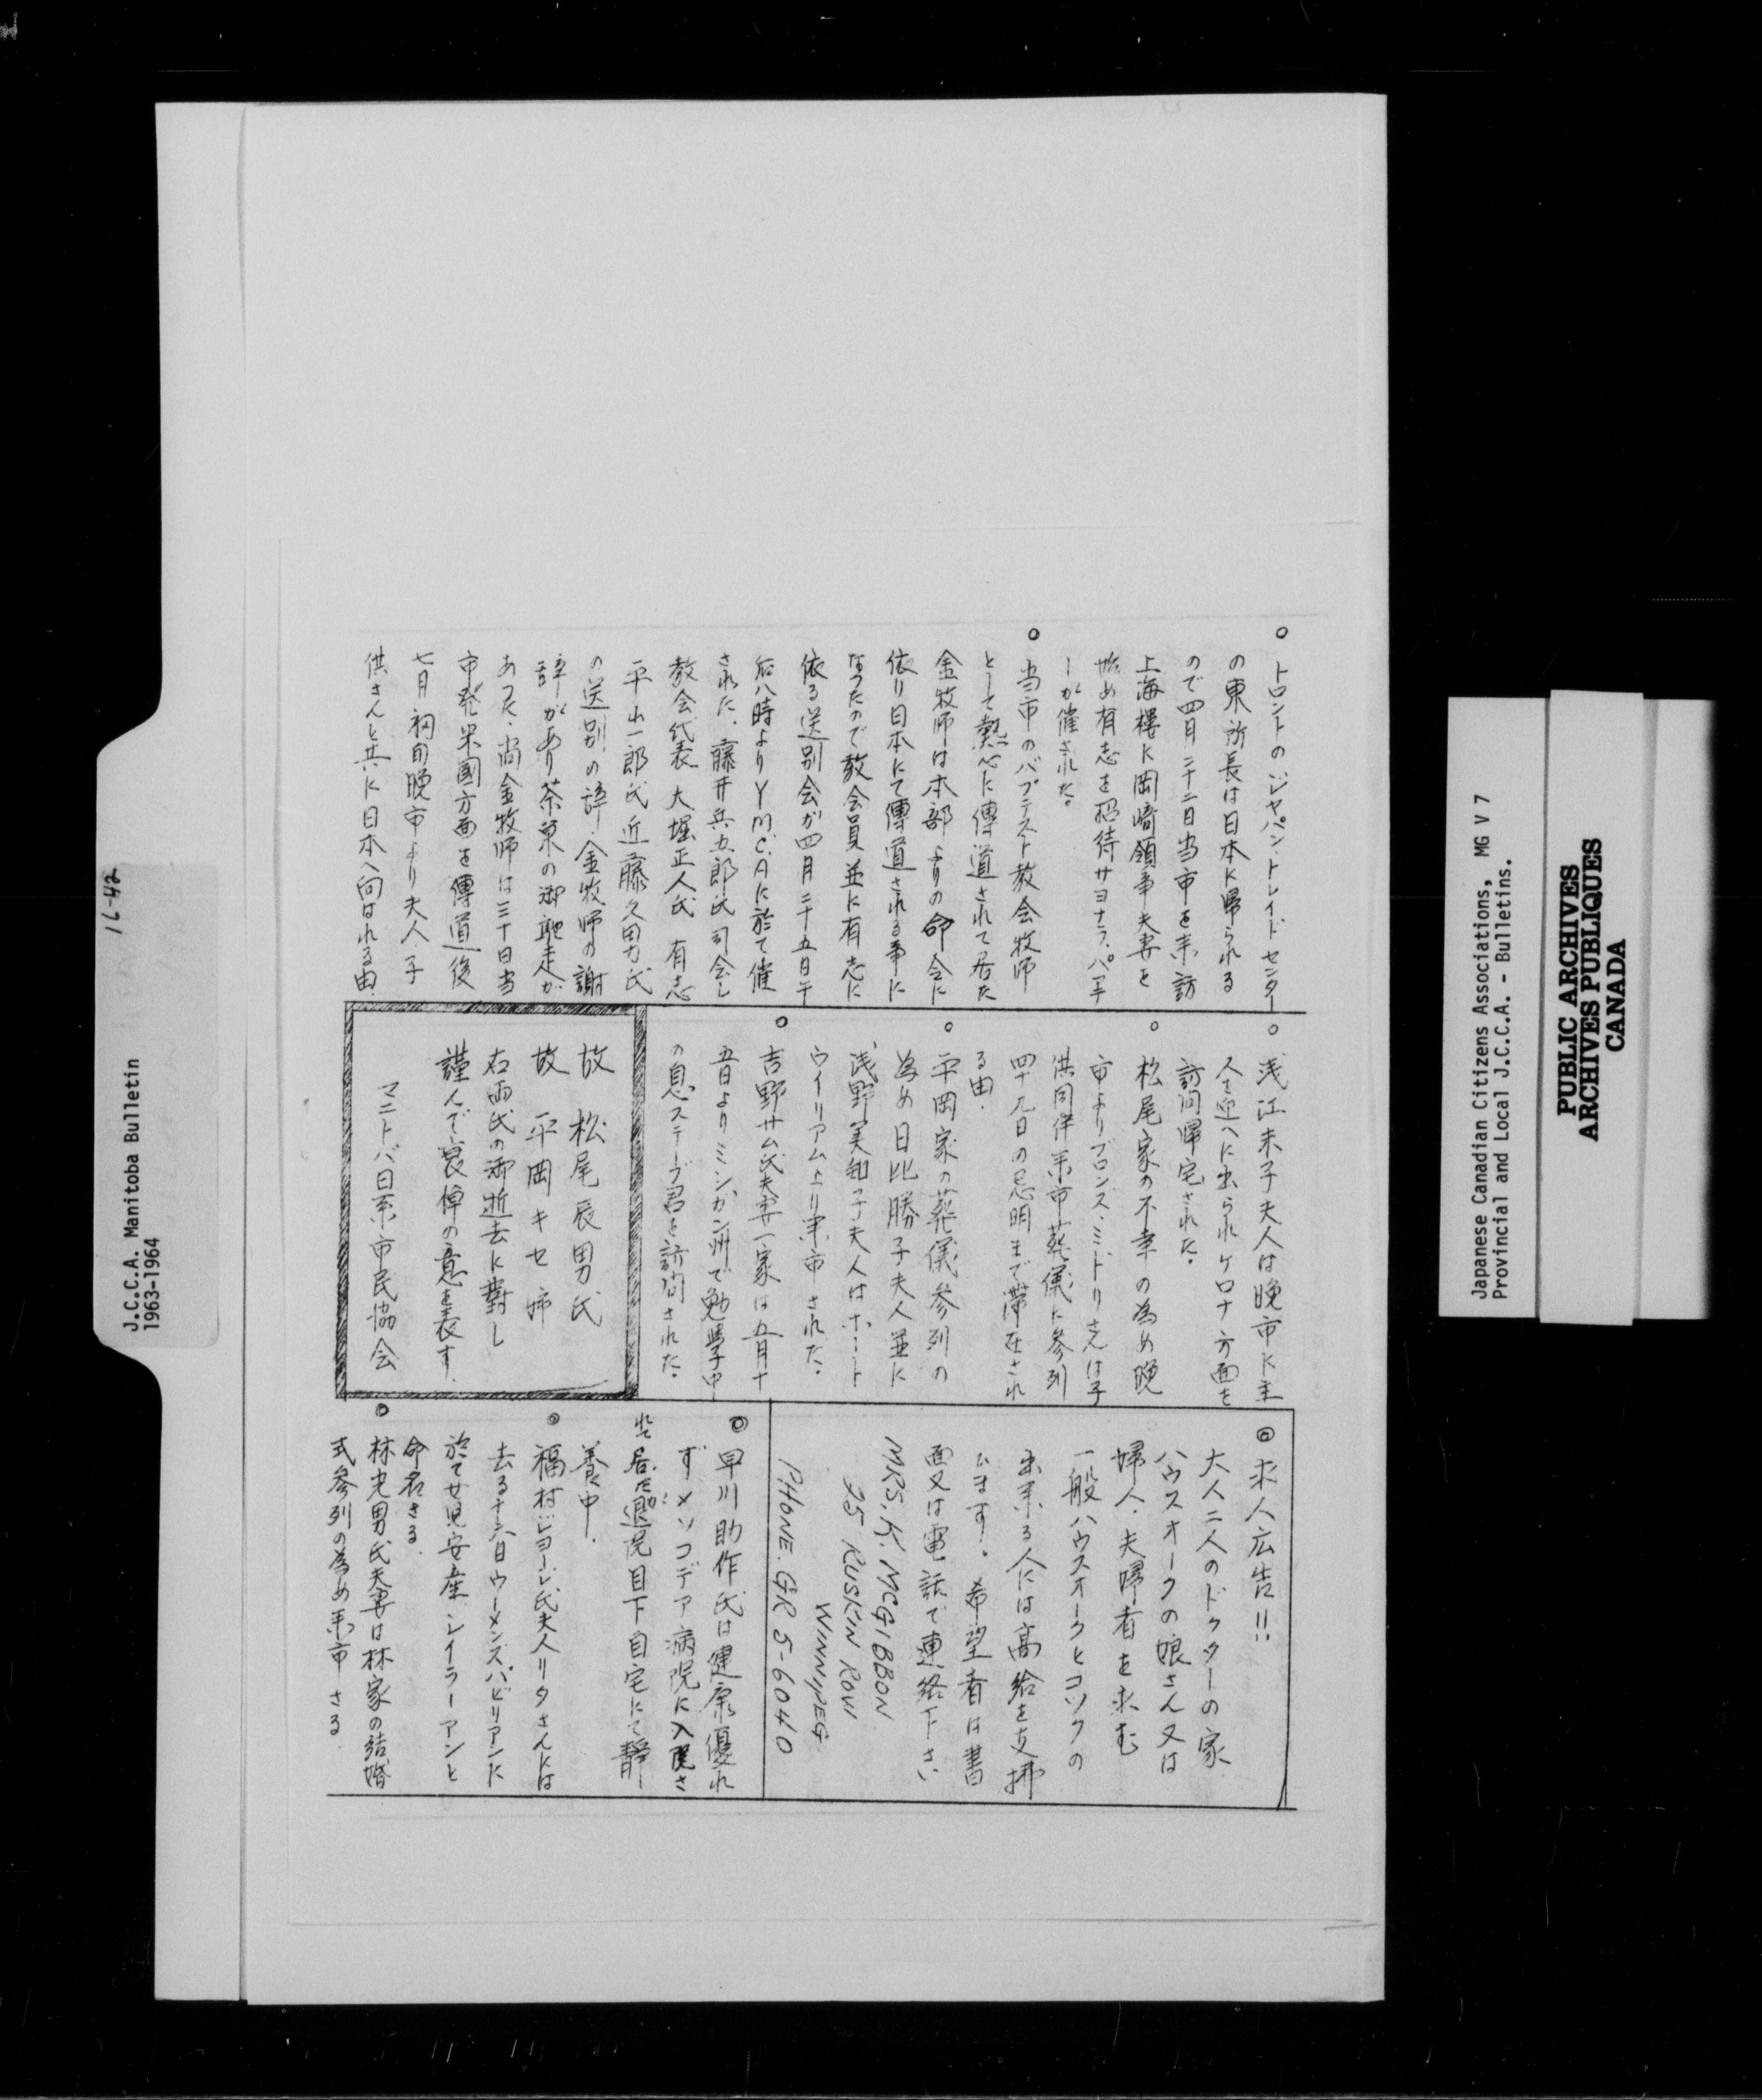 ○ トロントのジャパン・トレイドセンター
の東所長は日本に帰られる
ので四月二十二日当市を来訪
上海樓に岡崎領事夫妻を
始め有志を招待サヨナラ・パーテ
ーが催された。
○ 当市のバプテスト教会牧師
として熱心に傳道されて居た
金牧師は本部よりの命令に
依り日本にて傳道される事に
なつたので教会員並に有志に
依る送別会が四月二十五日午
后八時よりYMC.Aに於て催
された、藤井兵五郎氏司会し
教会代表 大堀正人氏 有志
平山一郎氏 近藤久男氏
の送別の辞、金牧師の謝
辞があり茶菓の御馳走が
あつた、尚金牧師は三十日当
市発米國方面を傳道後
七月初旬晩市より夫人、子
供さんと共に日本へ向はれる由.
○ 浅江末子夫人は晩市に主
人を迎へに出られケロナ方面を
訪問帰宅された。
○ 松尾家の不幸の為め晩
市よりブロンズ・ミドリさんは子
供同伴来市葬儀に参列
四十九日の忌明まで滞在され
る由.
○ 平岡家の葬儀参列の
為め日比勝子夫人並に
浅野美知子夫人はホート
ウイリアムより来市された。
○ 吉野サム氏夫妻一家は五月十
五日よりミシガン州で勉學中
の息ステーブ君を訪問された。
故 松尾辰男氏
故 平岡キセ姉
右両氏の御逝去に對し
謹んで哀悼の意を表す.
マニトバ日系市民協会
◎ 求人広告!!
大人二人のドクターの家
ハウスオークの娘さん又は
婦人、夫婦者を求む
一般ハウスオークとコックの
出来る人には高給を支拂
ひます!。希望者は書
面又は電話で連絡下さい
MRS. K. MCGIBBON
25 RUSKIN ROW
WINNIPEG
PHONE. GR 5-6040
◎ 早川助作氏は健康優れ
ずメソコデア病院に入院さ
れて居たが退院目下自宅にて靜
養中.
◎ 福村ジョージ氏夫人リタさんには
去る十六日ウーメンズパビリアンに
於て女児安産 レイラーアンと
命名さる.
◎ 林光男氏夫妻は林家の結婚
式参列の為め来市さる.
16-42
J.C.C.A. Manitoba Bulletin
1963-1964
Japanese Canadian Citizens Associations, MG V 7
Provincial and Local J.C.C.A. - Bulletins.
PUBLIC ARCHIVES
ARCHIVES PUBLIQUES
CANADA